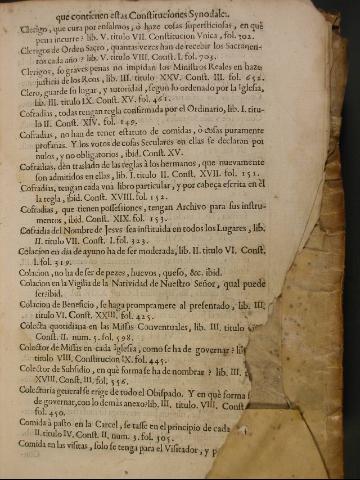 que contienen estas Constituciones Synodales.
Clerigo, que cura por ensalmos, ò haze cosas supersticiosas, en què
pena incurre? lib. V. titulo VII. Constitucion Vnica, fol. 702.
Clerigos de Orden Sacro, quantas vezes han de recebir los Sacramen-
tos cada año? lib. V. titulo VIII. Const. I. fol. 703.
Clerigos, so graves penas no impidan los Ministros Reales en hazer
justicia de los Reos, lib. III. titulo XXV. Const. III. fol. 652.
Clero, guarde su lugar, y autoridad, segun lo ordenado por la Iglesia,
lib. III. titulo IX. Const. XV. fol. 461.
Cofradias, todas tengan regla confirmada por el Ordinario, lib. I. titu-
lo II. Const. XIV. fol. 149.
Cofradias, no han de tener estatuto de comidas, ò cosas puramente
profanas. Y los votos de cosas Seculares en ellas se declaran por
nulos, y no obligatorios, ibid. Const. XV.
Cofradias, den traslado de las reglas à los hermanos, que nuevamente
son admitidos en ellas, lib. I. titulo II. Const. XVII. fol. 151.
Cofradias, tengan cada vna libro particular, y por cabeça escrita en èl
la regla, ibid. Const. XVIII. fol. 152.
Cofradias, que tienen possessiones, tengan Archivo para sus instru-
mentos, ibid. Const. XIX. fol. 153.
Cofradia del Nombre de Jesvs sea instituida en todos los Lugares, lib.
II. titulo VII. Const. I. fol. 323.
Colacion en dia de ayuno ha de ser moderada, lib. II. titulo VI. Const.
I. fol. 319.
Colacion, no ha de ser de pezes, huevos, queso, &c. ibid.
Colacion en la Vigilia de la Natividad de Nuestro Señor, qual puede
ser? ibid.
Colacion de Beneficio, se haga promptamente al presentado, lib. III.
titulo VI. Const. XXIII. fol. 425.
Colecta quotidiana en las Missas Conventuales, lib. III. titulo
Const. II. num. 5. fol. 598.
Colector de Missas en cada Iglesia, como se ha de governar?
titulo VIII. Constitucion IX. fol. 445.
Colector de Subsidio, en què forma se ha de nombrar? lib. III.
XVIII. Const. III. fol. 556.
Colecturia general se erige de todo el Obispado. Y en què forma
de governar, con lo demàs anexo? lib. III. titulo VIII. Const
fol. 450.
Comida à pasto en la Carcel, se tasse en el principio de cada
II. titulo IV. Const. II. num. 3. fol. 305.
Comida en las visitas, solo se tenga para el Visitador, y p